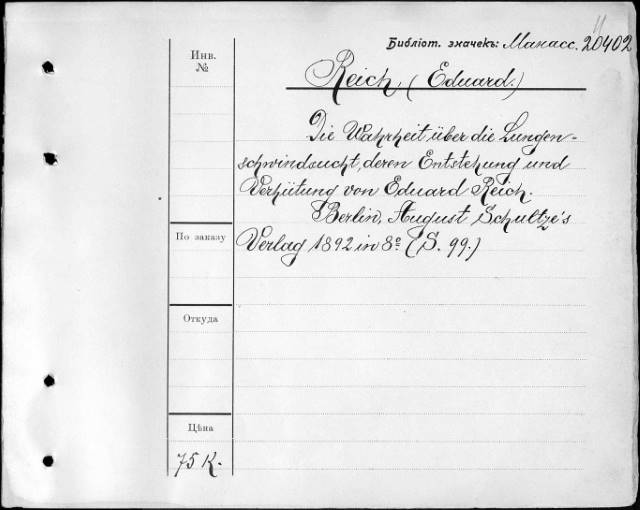 11
Библіот. значекъ: Манасс. 20402
Инв.
№
Reich, (Eduard.)
Die Wahrheit über die Lungen-
schwindsucht, deren Entstehung und
Verhütung von Eduard Reich.
Berlin, August Schultze's
По заказу
Verlag 1892 in 8º (S. 99.)
Откуда
Цѣна
75 К.